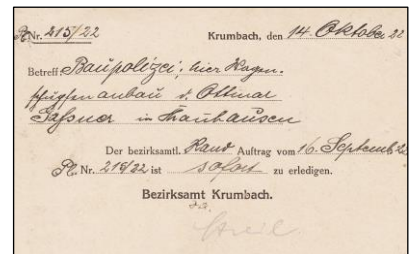 Nr. 215/22 Krumbach, den 14. Oktober 22
Betreff Baupolizei; hier Wagen-
anbau d. Ottmar
in
Der bezirksamtl. Rand Auftrag vom 16. Septemb. 22
Nr. 215/22 ist sofort zu erledigen.
Bezirksamt Krumbach.